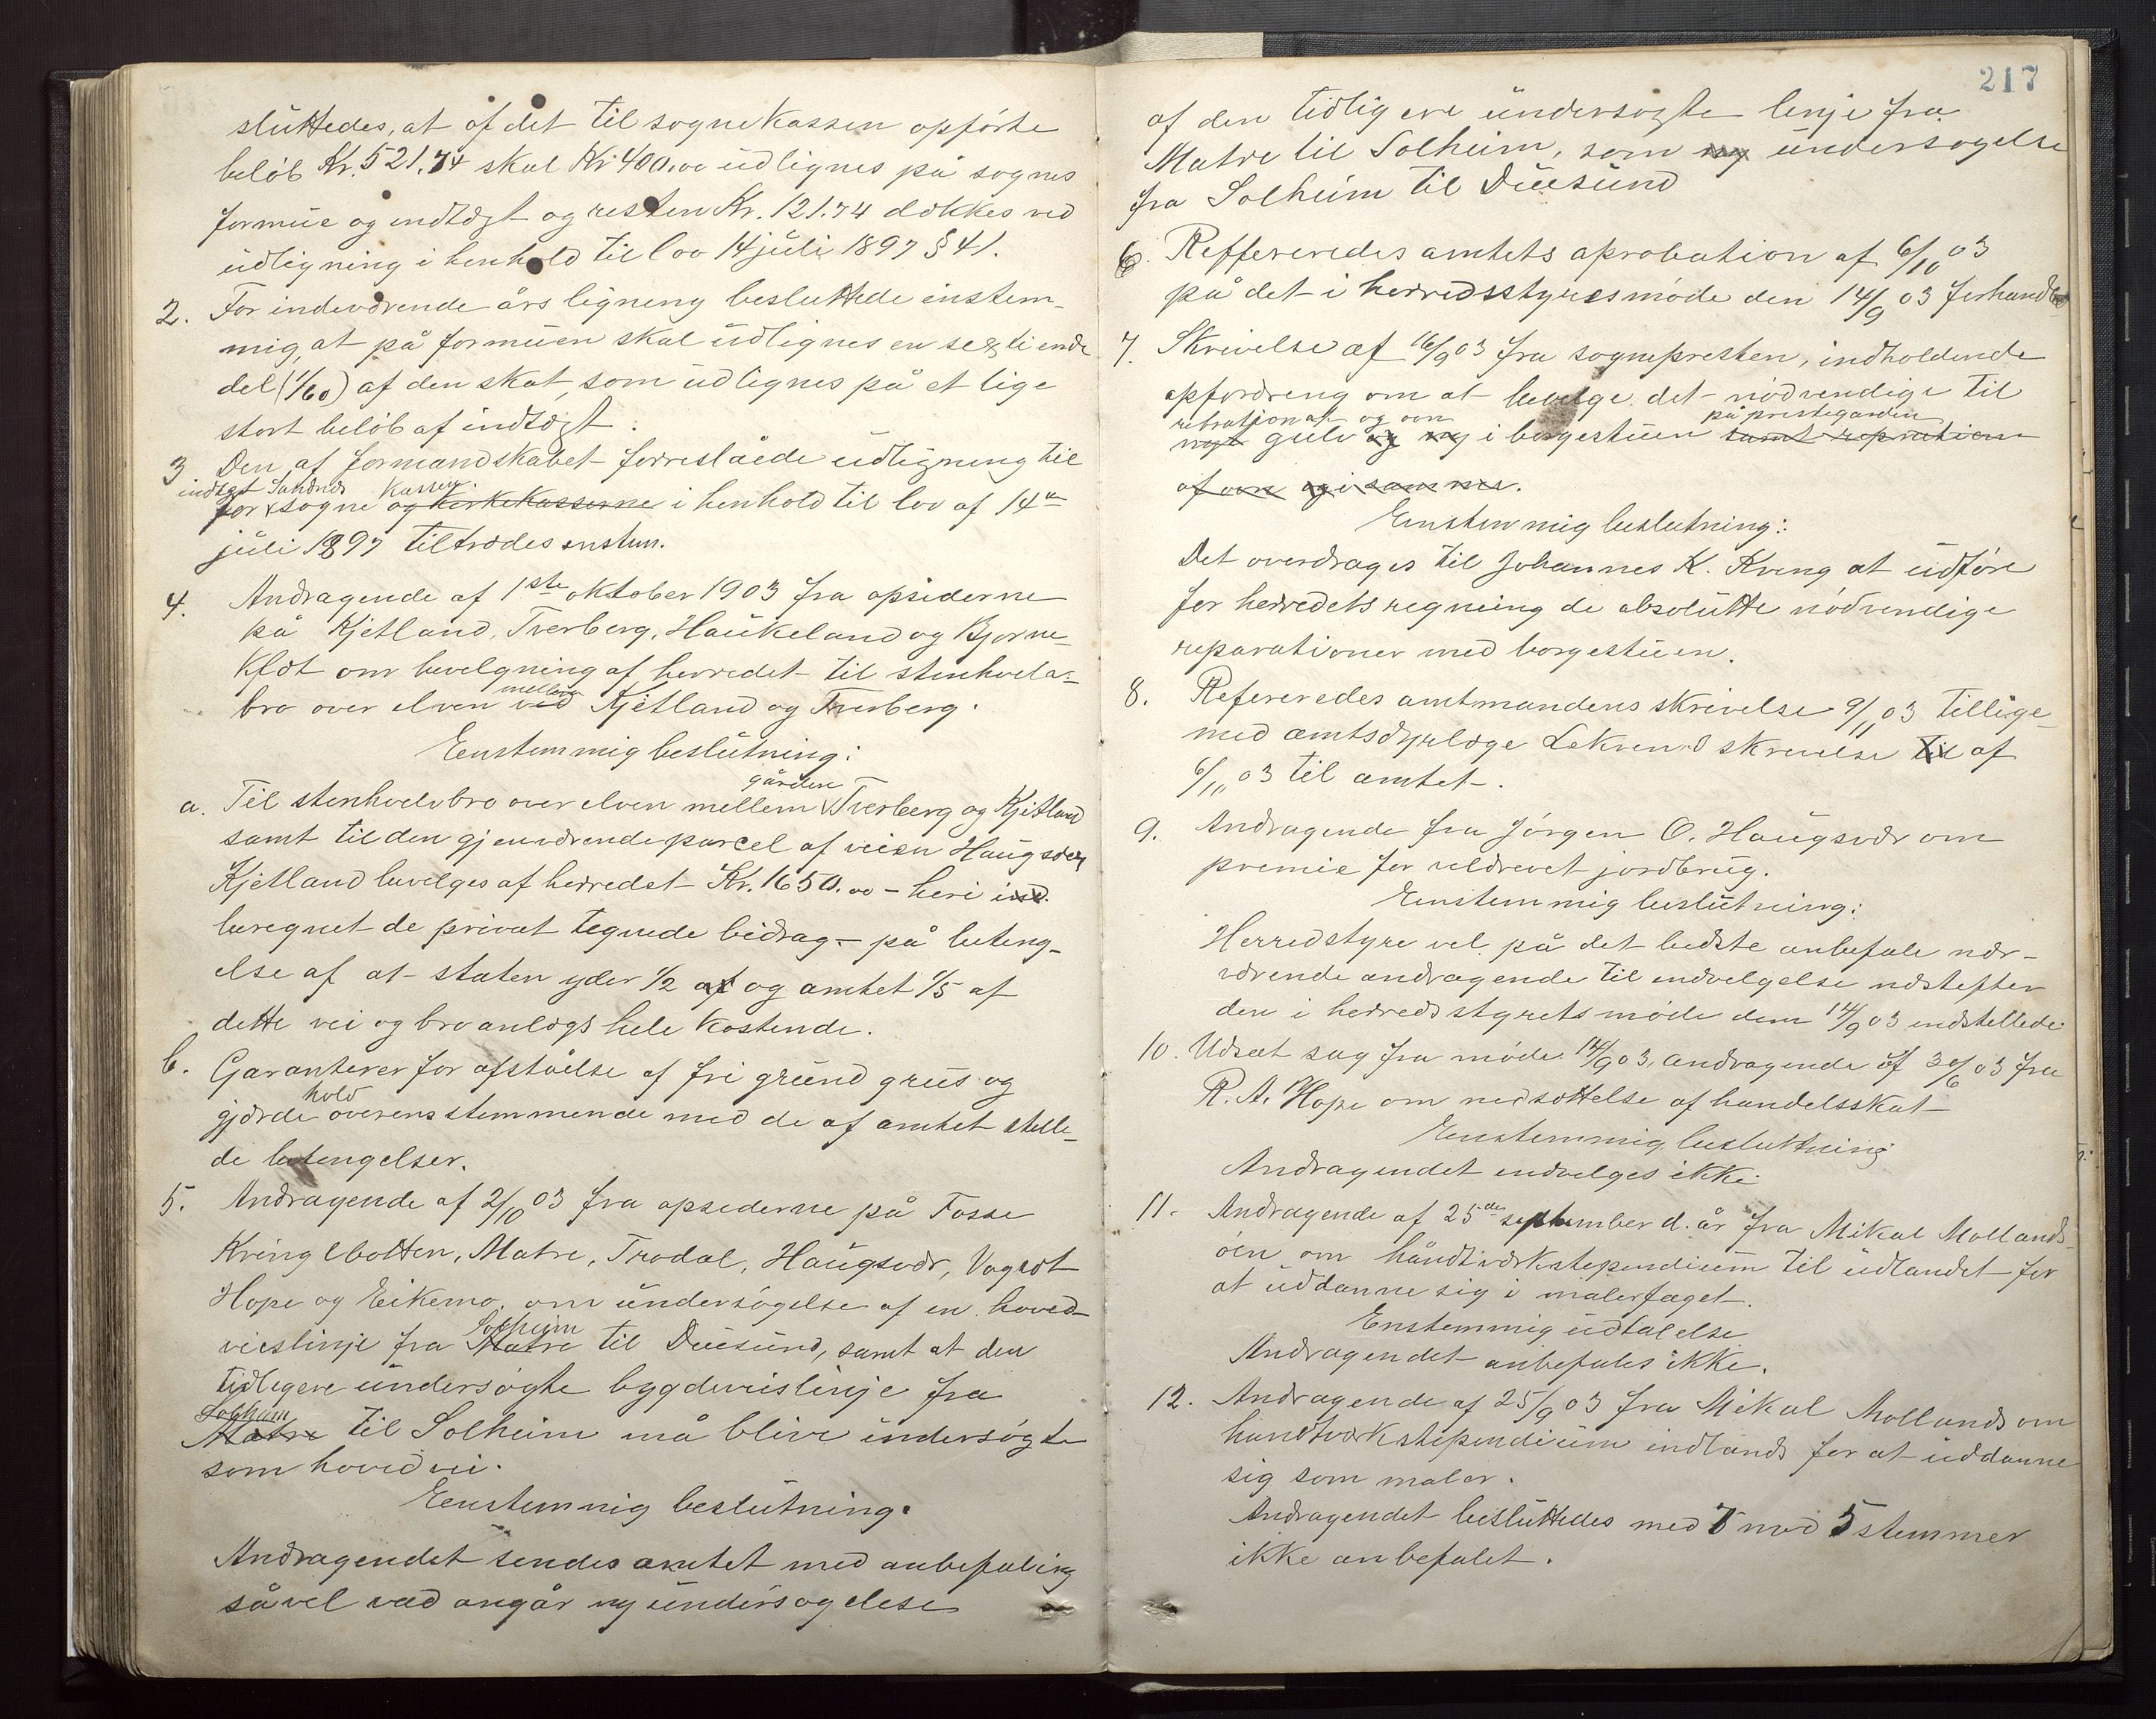 sluttedes, at af det til sognekassen opførte
beløb Kr. 521.74 skal Kr 400.00 udlignes på sognes
formue og indtægt og resten Kr. 121.74 dækkes ved
udligning i henhold til lov 14 juli 1897 § 41.
2. For indeværende års ligning besluttede enstem-
mig, at på formuen skal udlignes en sextiende
del (1/60) af den skat, som udlignes på et lige
stort beløb af indtægt.
3 Den af formandskabet foreslåede udligning til
indtægt Sandnes Kassen
for sogne og kirkekasserne i henhold til lov af 14de
juli 1897 tiltrædes enstem.
4. Andragende af 1ste oktober 1903 fra opsiderne
på Kjetland, Tverberg, Haukeland og Bjørne-
kløt om bevilgning af herredet til stenhvelv-
mellem
bro over elven ved Kjetland og Tverberg.
Eenstemmig beslutning:
gårdene
a. Til stenhvelvbro over elven mellem Tverberg og Kjetland
samt til den gjenværende parcel af veien Haugsvær
Kjetland bevilges af herredet Kr. 1650.00 – heri ind
beregnet de privat tegnede bidrag – på beting-
else af at staten yder 1/2 af og amtet 1/5 af
dette vei og broanlægs hele kostende.
b. Garanterer for afståelse af fri grund grus og
hold
gjærde overensstemmende med de af amtet stille-
de betengelser.
5. Andragende af 2/10 03 fra opsederne på Fosse
Kringlbotten, Matre, Trodal, Haugsvær, Vognøt
Hope og Eikemo om undersøgelse af en hoved-
Solheim
veislinje fra Matre til Duesund, samt at den
tidligere undersøgte bygdeveislinje fra
Solheim
Matre til Solheim må blive undersøgte
som hovedvei.
Eenstemmig beslutning.
Andragendet sendes amtet med anbefaling
såvel vad angår ny undersøgelse
217
af den tidligere undersøgte linje fra
Matre til Solheim, som ny undersøgelse
fra Solheim til Duesund
6. Reffereredes amtets aprobation af 6/10 03
på det i herredsstyresmøde den 14/9 03 forhandlede
7. Skrivelse af 16/9 03 fra sognepresten, indholdende
opfordreng om at bevelge det nødvendige til
og ovn på prestegarden
nyt gulv og ny i borgestuen samt repration
af ovn og i samme.
Eenstemmig beslutning:
Det overdrages til Johannes K. Kveng at udføre
for herredets regning de absolutte nødvendige
reparationer med borgestuen.
8. Refereredes amtmandens skrivelse 9/11 03 tillige-
med amtsdyrlæge Lekvens skrivelse til af
6/11 03 til amtet.
9. Andragende fra Jørgen O. Haugsvær om
premie for veldrevet jordbrug.
Eenstemmig beslutning:
Herredstyre vel på det bedste anbefale nær-
værende andragende til indvelgelse næstefter
den i herredsstyrets møde dem 14/9 03 indstellede
10. Udsat sag fra møde 14/9 03, andragende af 30/6 03 fra
R. A. Hope om nedsættelse af handelsskat
Eenstemmig besluttning
Andragendet endvelges ikke.
11. Andragende af 25de september d. år fra Mikal Mollands-
øen om håndtværkstependium til udlandet for
at uddanne sig i malerfaget.
Enstemmig udtalelse
Andragendet anbefales ikke.
12. Andragende af 25/9 03 fra Mikal Mollands om
handtværkstependium indlands for at uddanne
sig som maler.
Andragendet besluttedes med 7 mod 5 stemmer
ikke anbefalet.